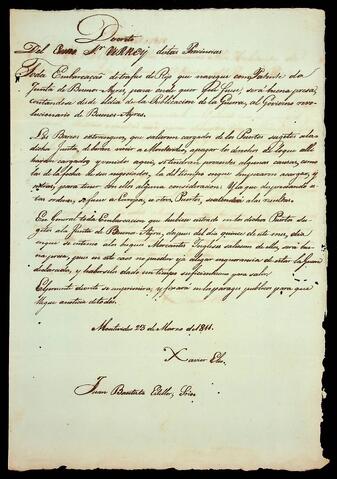 Decreto
Del Exmo Sr. VIRREY de estas Provincias
Toda Embarcacion de trafico de Rio que navegue con Patente de la
Junta de Buenos-Ayres, para onde quer fuese, será buena presa,
contandose desde el dia de la Publicacion de la Guerra, al Govierno revo-
lucionario de Buenos-Ayres.
Los Barcos estrangeros, que salieron cargados de los Puertos sugetos a la
dicha Junta, deberan venir a Montevideo, a pagar los derechos de lo que alli
hayan cargados, y venido aqui, se tendran presentes algunas causas, como
las de la fecha de su negociado, la del tiempo en que empezaron a cargar, y
para tener con ellos alguna consideracion. Y la que desobedeciendo
esta orden, se fuese a Europa, u otros Puertos,
En General toda Embarcacion que hubiese entrado en los dichos Puertos su-
getos a la Junta de Buenos-Ayres, despues del dia quince de este mes, dia
en que se intimo a los buques Mercantes Ingleses saliesen de ellos, será bue-
na presa, pues en este caso no pueden ya alegar ignorancia de estar la guerra
declarada, y haberseles dado un tiempo suficiente para salir
El presente decreto se imprimirá, y fixará en los parages publicos para que
llegue a noticia de todos.
Montevideo 23 de Marzo de 1811.
Xavier Elio.
Juan Bautista Srio